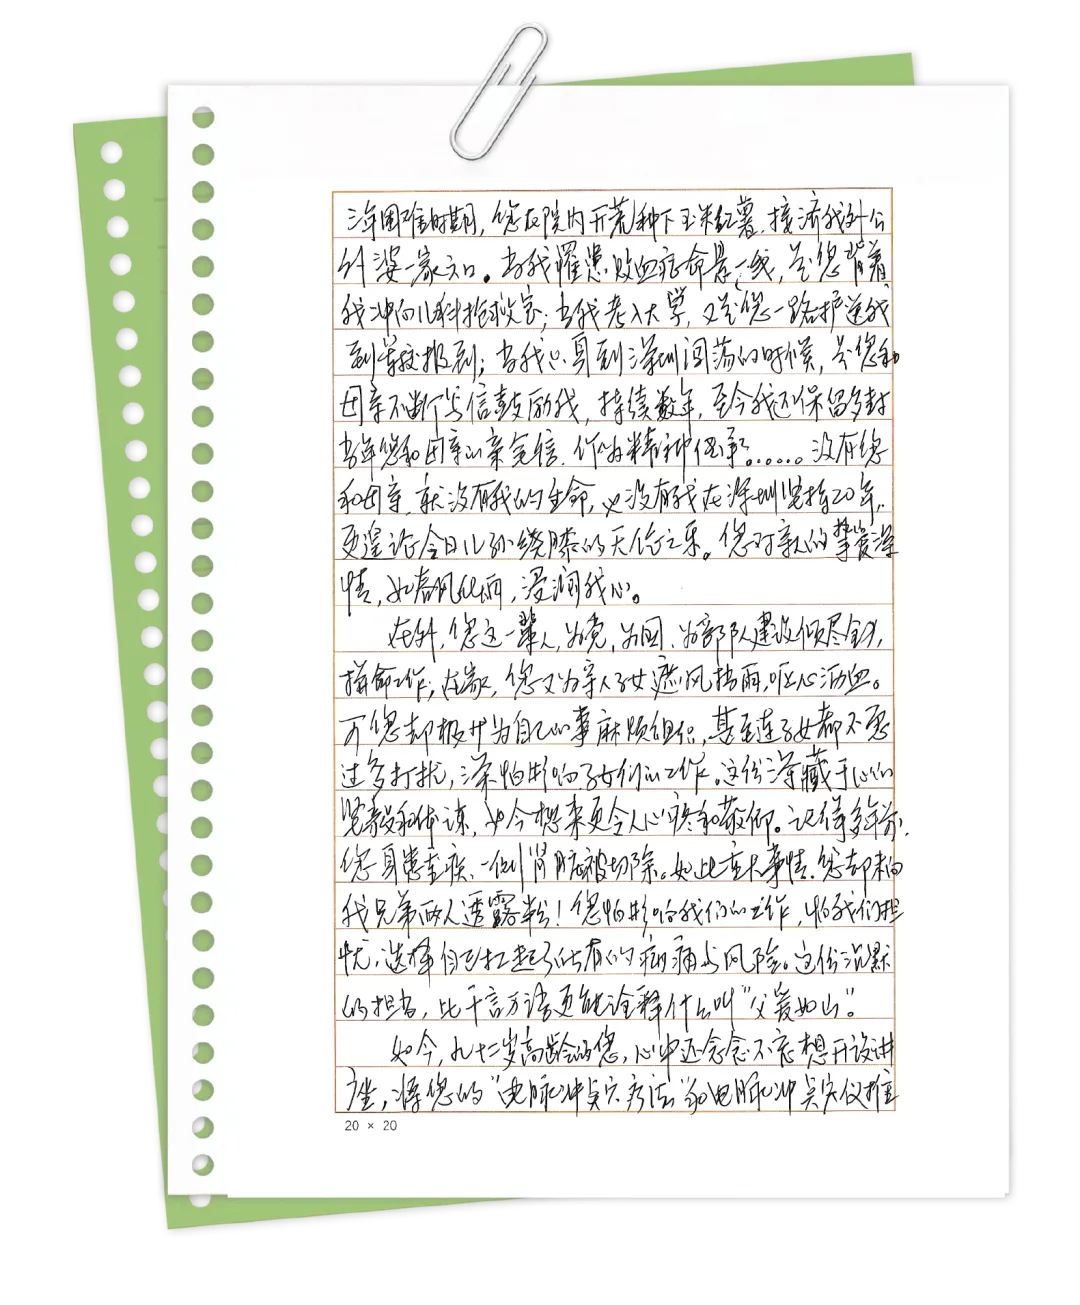 三年困难时期，您在院内开荒种下玉米红薯，接济我外公
外婆一家六口。当我罹患败血症命悬一线，是您背着
我冲向儿科抢救室；当我考入大学，又是您一路护送我
到学校报到；当我只身到深圳闯荡的时候，是您和
母亲不断写信鼓励我，持续数年，至今我还保留多封
当年您和母亲的亲笔信，作为精神传承……没有您
和母亲，就没有我的生命，也没有我在深圳坚持20年，
更遑论今日儿孙绕膝的天伦之乐。您对亲人的挚爱深
情，如春风化雨，浸润我心。
在外，您这一辈人，为党，为国，为部队建设倾尽全力，
拼命工作；在家，您又为亲人子女遮风挡雨，呕心沥血。
可您却极少为自己的事麻烦组织，甚至连子女都不愿
过多打扰，深怕影响子女们的工作。这份深藏于心的
坚毅和体谅，如今想来更令人心疼和敬仰。记得多年前，
您身患重疾，一侧肾脏被切除。如此重大事情，您却未向
我兄弟两人透露半分！您怕影响我们的工作，怕我们担
忧，选择自己扛起了所有的病痛与风险。这份沉默
的担当，比千言万语更能诠释什么叫“父爱如山”。
如今，九十二岁高龄的您，心中还念念不忘想开设讲
座，将您的“电脉冲点穴疗法”和电脉冲点穴仪推
20 × 20